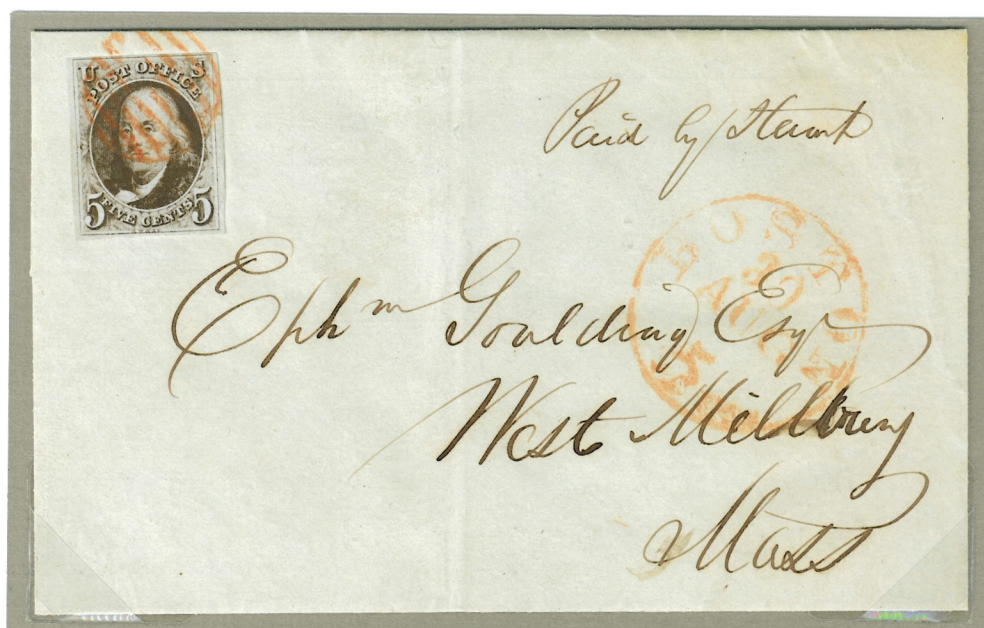 U S
POST OFFICE
5 FIVE CENTS 5
Paid by Stamp
BOSTON
Ephm Goulding Esqr
West Millbury
Mass